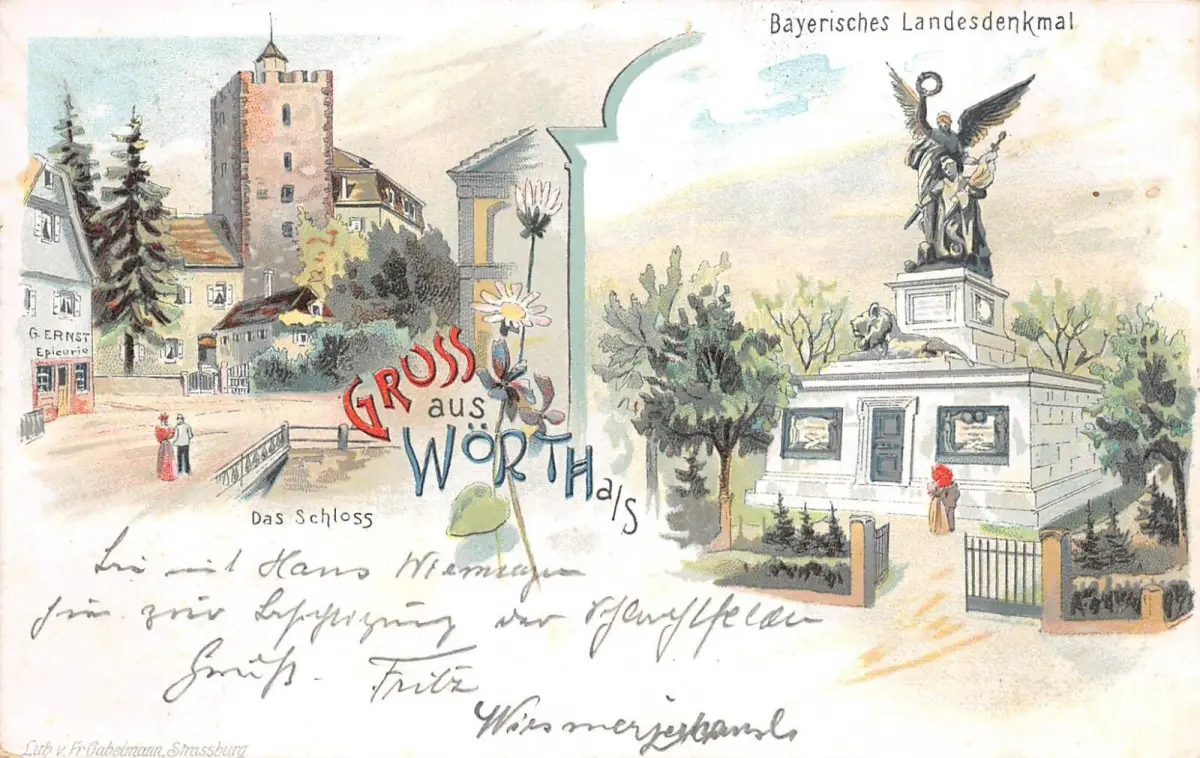 Bayerisches Landesdenkmal
G. ERNST
Epicerie
GRUSS
aus
WÖRTH a/S
Das Schloss
mit Hans
hier zur Besichtigung der Schlachtfelder
Gruß. Fritz
Lith v. Fr Gabelmann, Strassburg